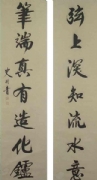 弦上深知流水意
筆端真有造化鑪